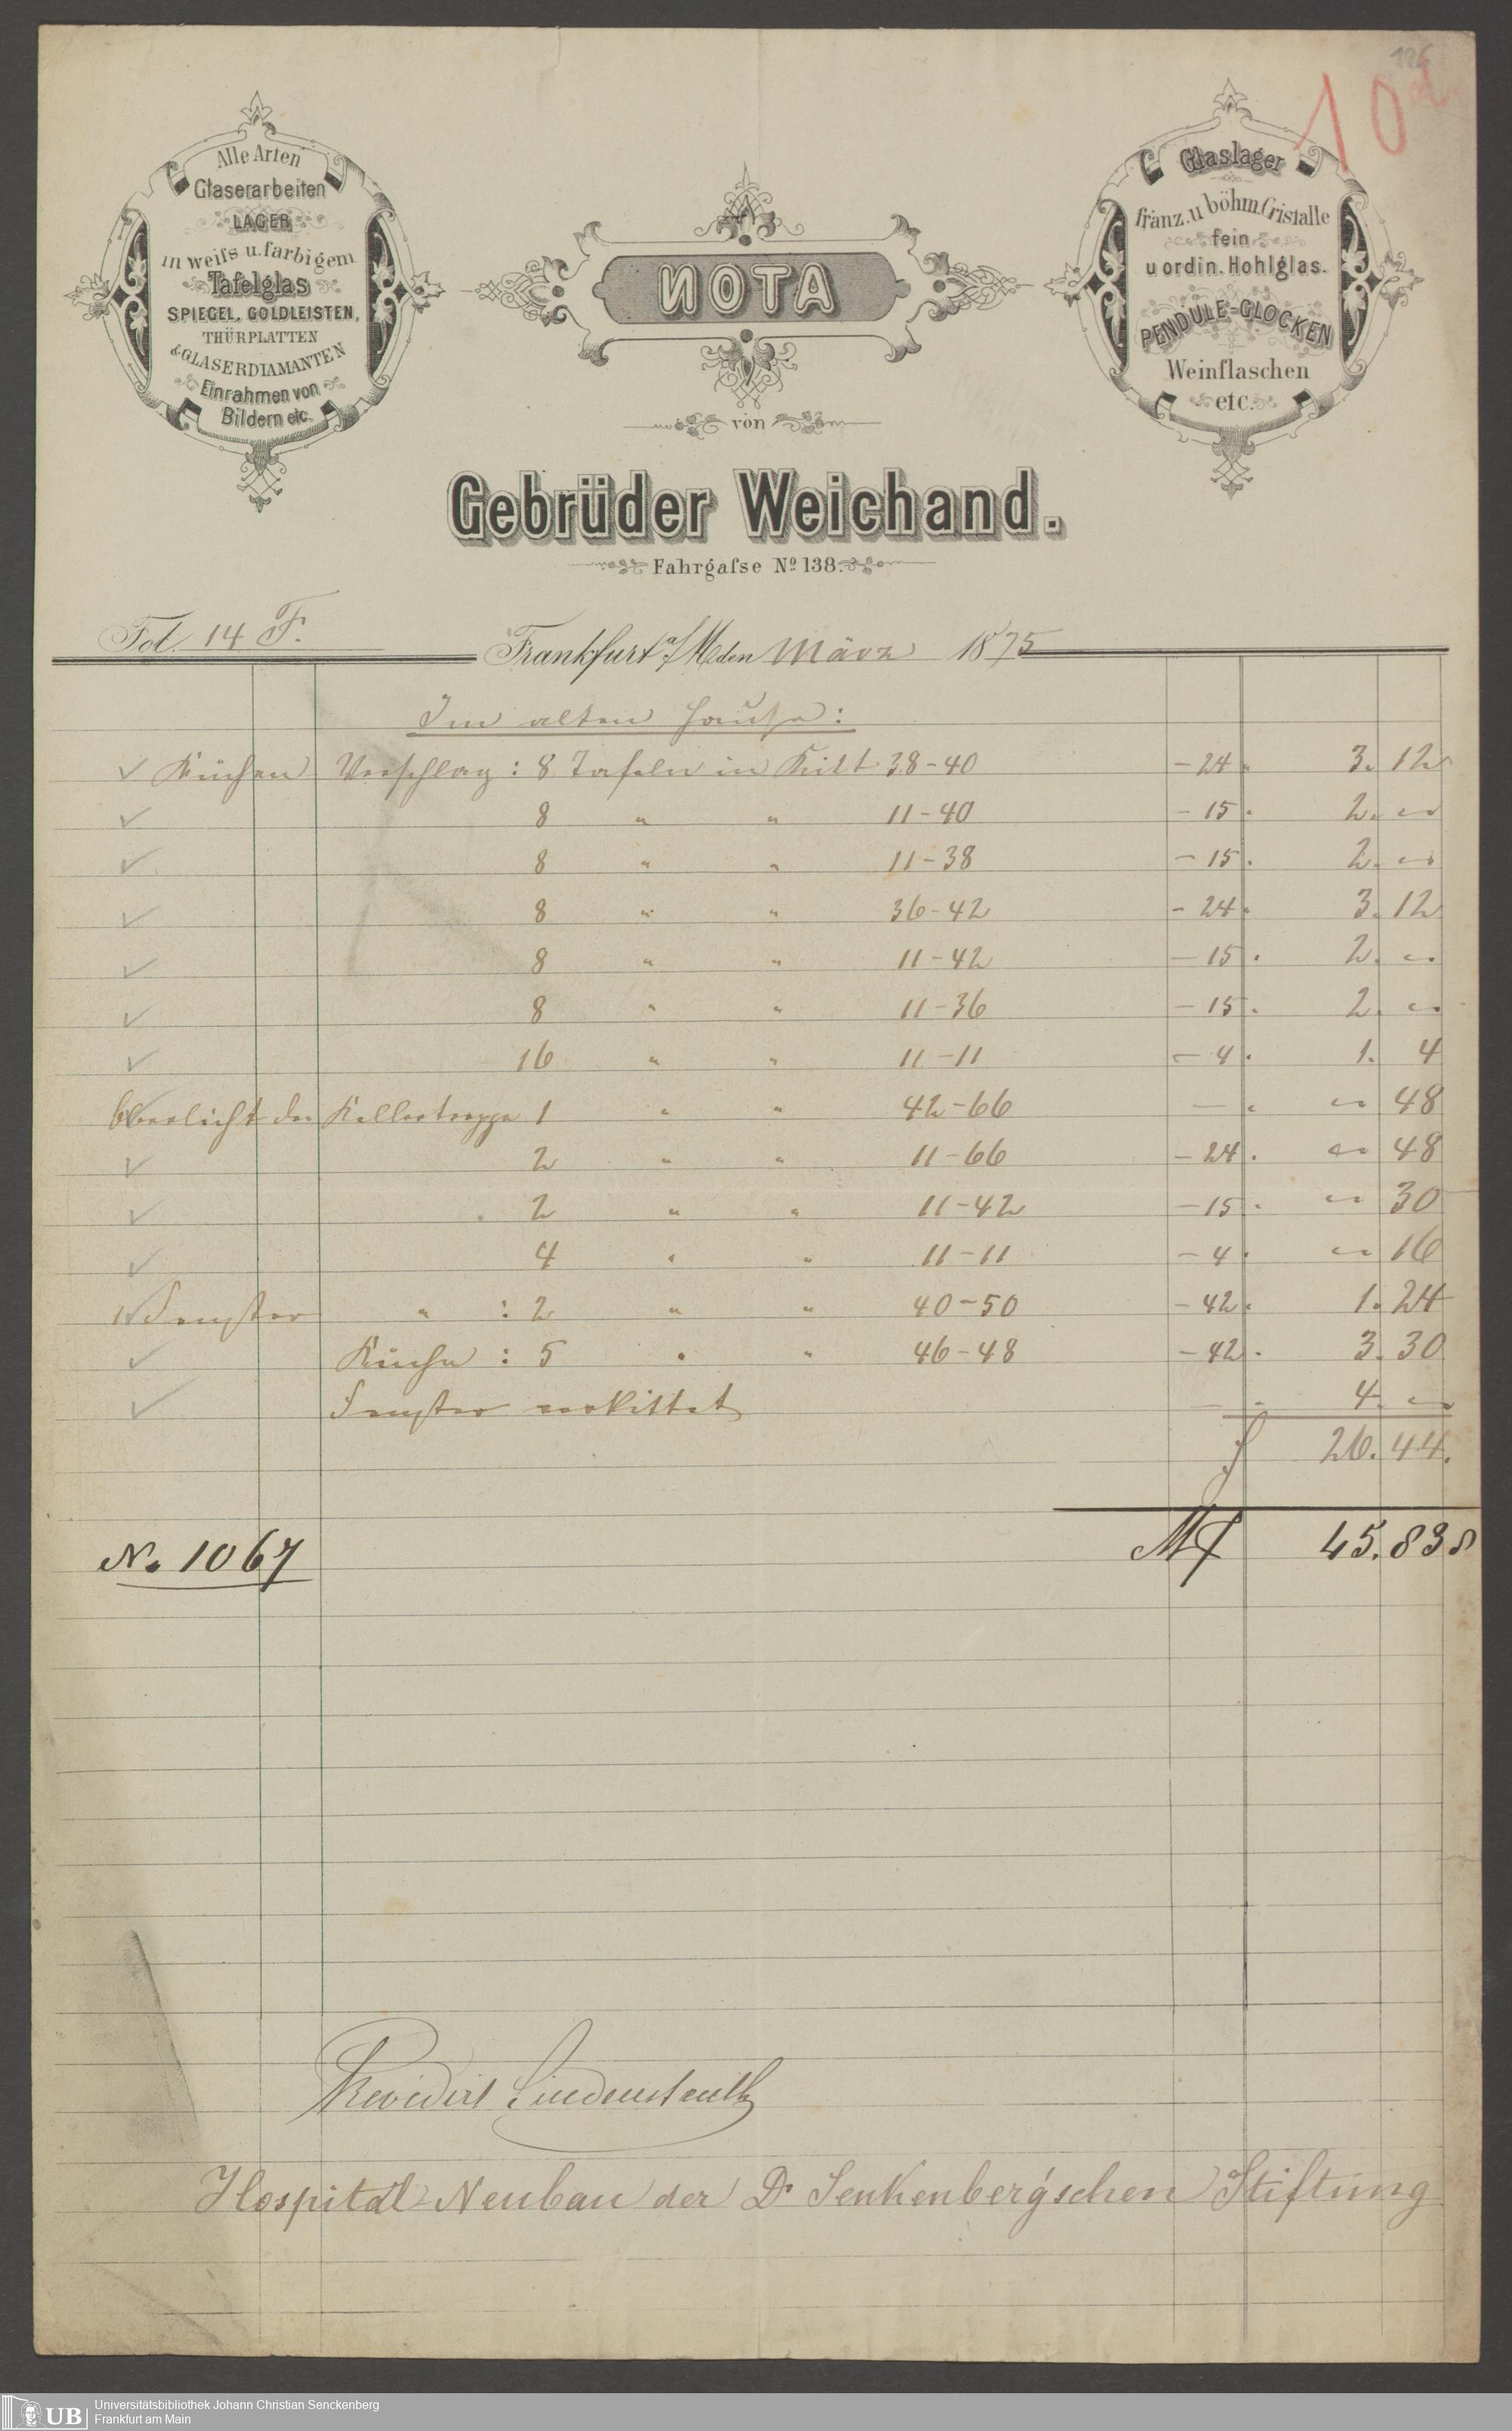 126
10d
Alle Arten
Glaserarbeiten
LAGER
in weiſs u. farbigem
Tafelglas
SPIEGEL, GOLDLEISTEN,
THÜRPLATTEN
& GLASERDIAMANTEN
Einrahmen von
Bildern etc.
NOTA
von
Glaslager
franz. u böhm. Cristalle
fein
u ordin. Hohlglas.
PENDULE-GLOCKEN
Weinflaschen
etc.
Gebrüder Weichand.
Fahrgaſse No 138.
Fol. 14 F.
Frankfurt a/M den März 1875
Im alten Hause:
Küchen Verschlag : 8 Tafeln in Kitt 38-40 - 24 . 3. 12
8 " " 11-40 - 15 . 2. "
8 " " 11-38 - 15 . 2. "
8 " " 36-42 - 24 . 3. 12
8 " " 11-42 - 15 . 2. "
8 " " 11-36 - 15 . 2. "
16 " " 11-11 - 4 . 1. 4
Oberlicht der Kellertreppe 1 " " 42-66 - . " 48
2 " " 11-66 - 24 . " 48
2 " " 11-42 - 15 . " 30
4 " " 11-11 - 4 . " 16
Fenster " : 2 " " 40-50 - 42 . 1. 24
Küche : 5 " " 46-48 - 42 . 3. 30
Fenster verkittet - . 4. "
f 26. 44.
N. 1067
M 45. 83
Revidirt Lindenstruth
Hospital-Neubau der Dr Senkenberg'schen Stiftung
UB
Universitätsbibliothek Johann Christian Senckenberg
Frankfurt am Main